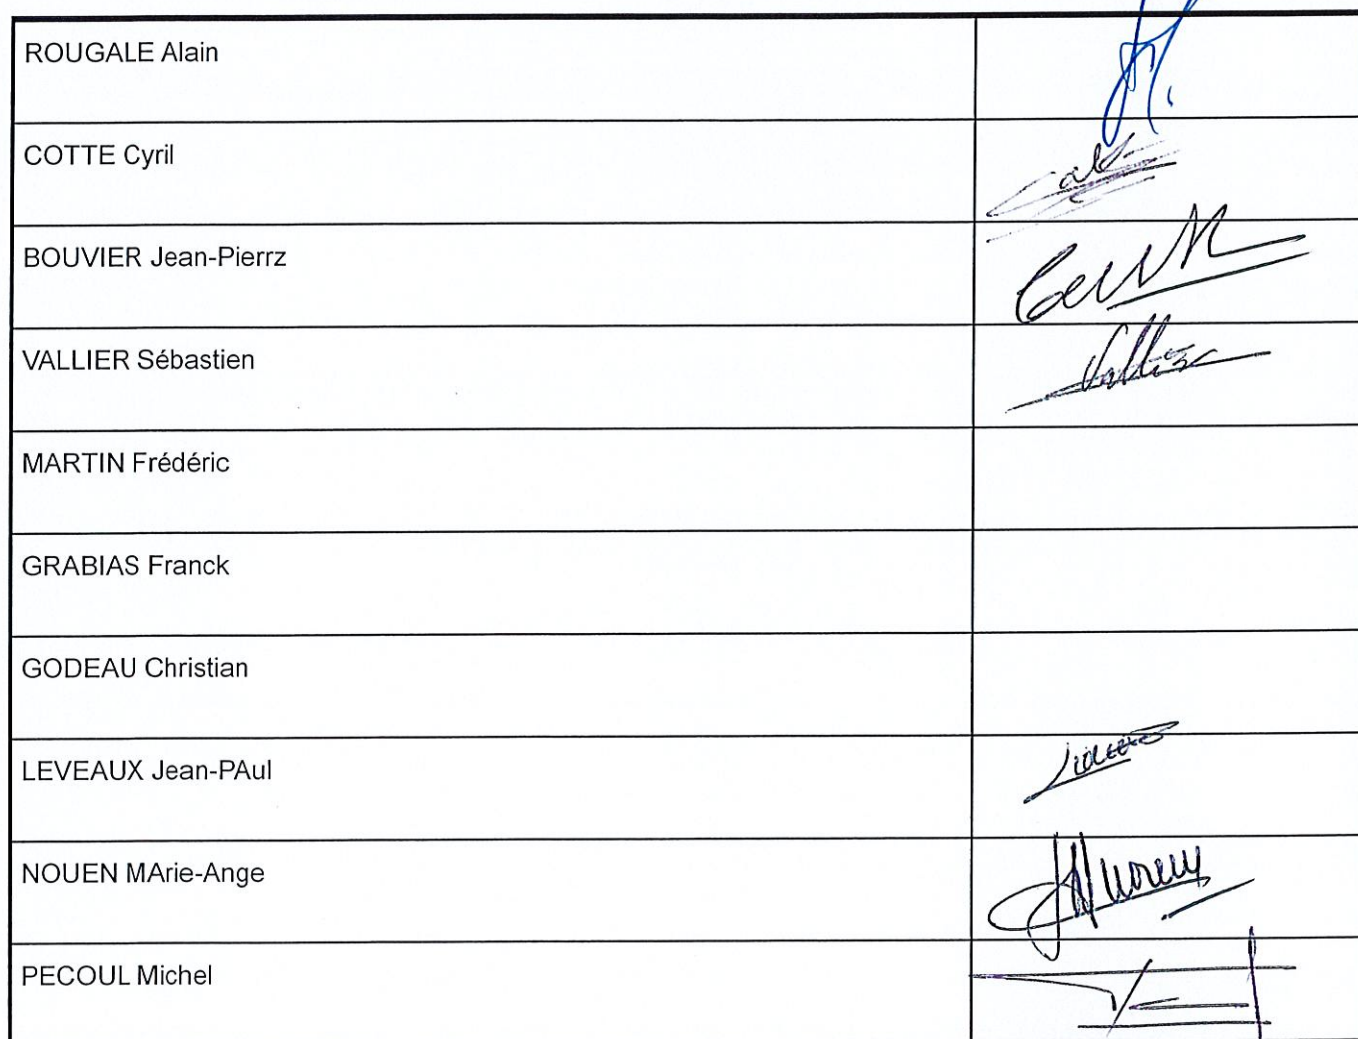 ROUGALE Alain
COTTE Cyril
BOUVIER Jean-Pierrz
VALLIER Sébastien
MARTIN Frédéric
GRABIAS Franck
GODEAU Christian
LEVEAUX Jean-PAul
NOUEN MArie-Ange
PECOUL Michel